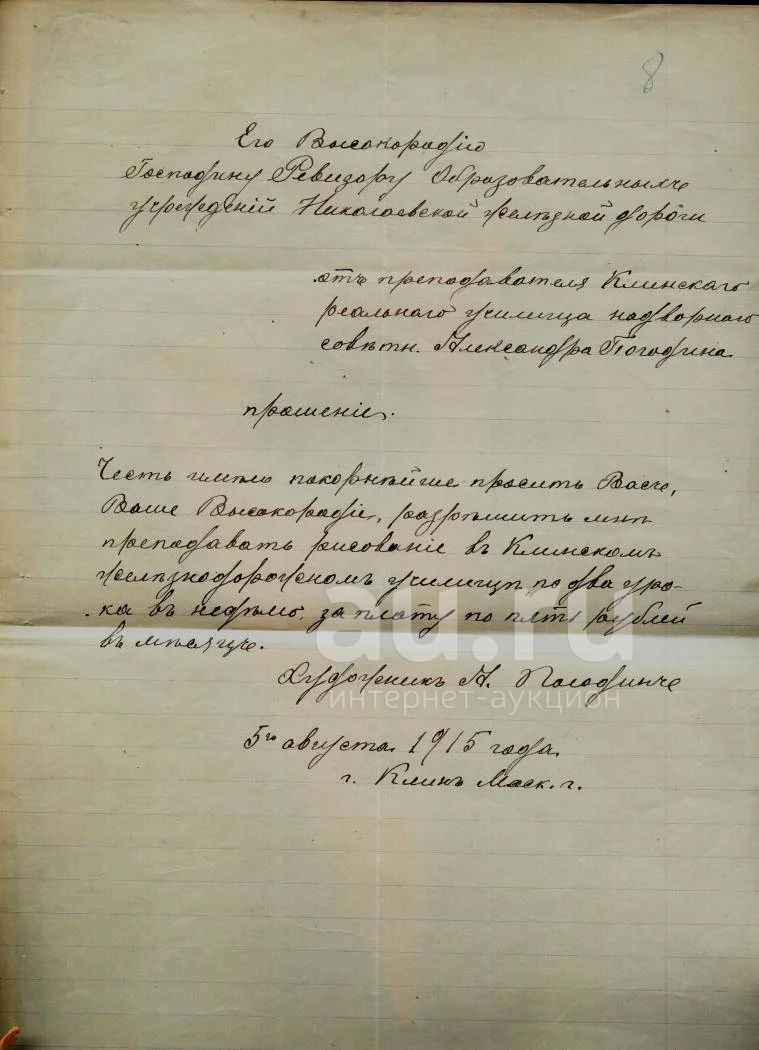 8
Его Высокородію
Господину Ревизору Образовательныхъ
учрежденій Николаевской желѣзной дороги
отъ преподавателя Клинскаго
реальнаго училища надворнаго
совѣтн. Александра Погодина
прошеніе.
Честь имѣю покорнѣйше просить Васъ,
Ваше Высокородіе, разрѣшить мнѣ
преподавать рисованіе въ Клинскомъ
желѣзнодорожномъ училищѣ по два уро-
ка въ недѣлю, за плату по пяти рублей
въ мѣсяцъ.
au.ru
Художникъ А. Погодинъ
интернет-аукцион
5го августа 1915 года
г. Клинъ Моск. г.